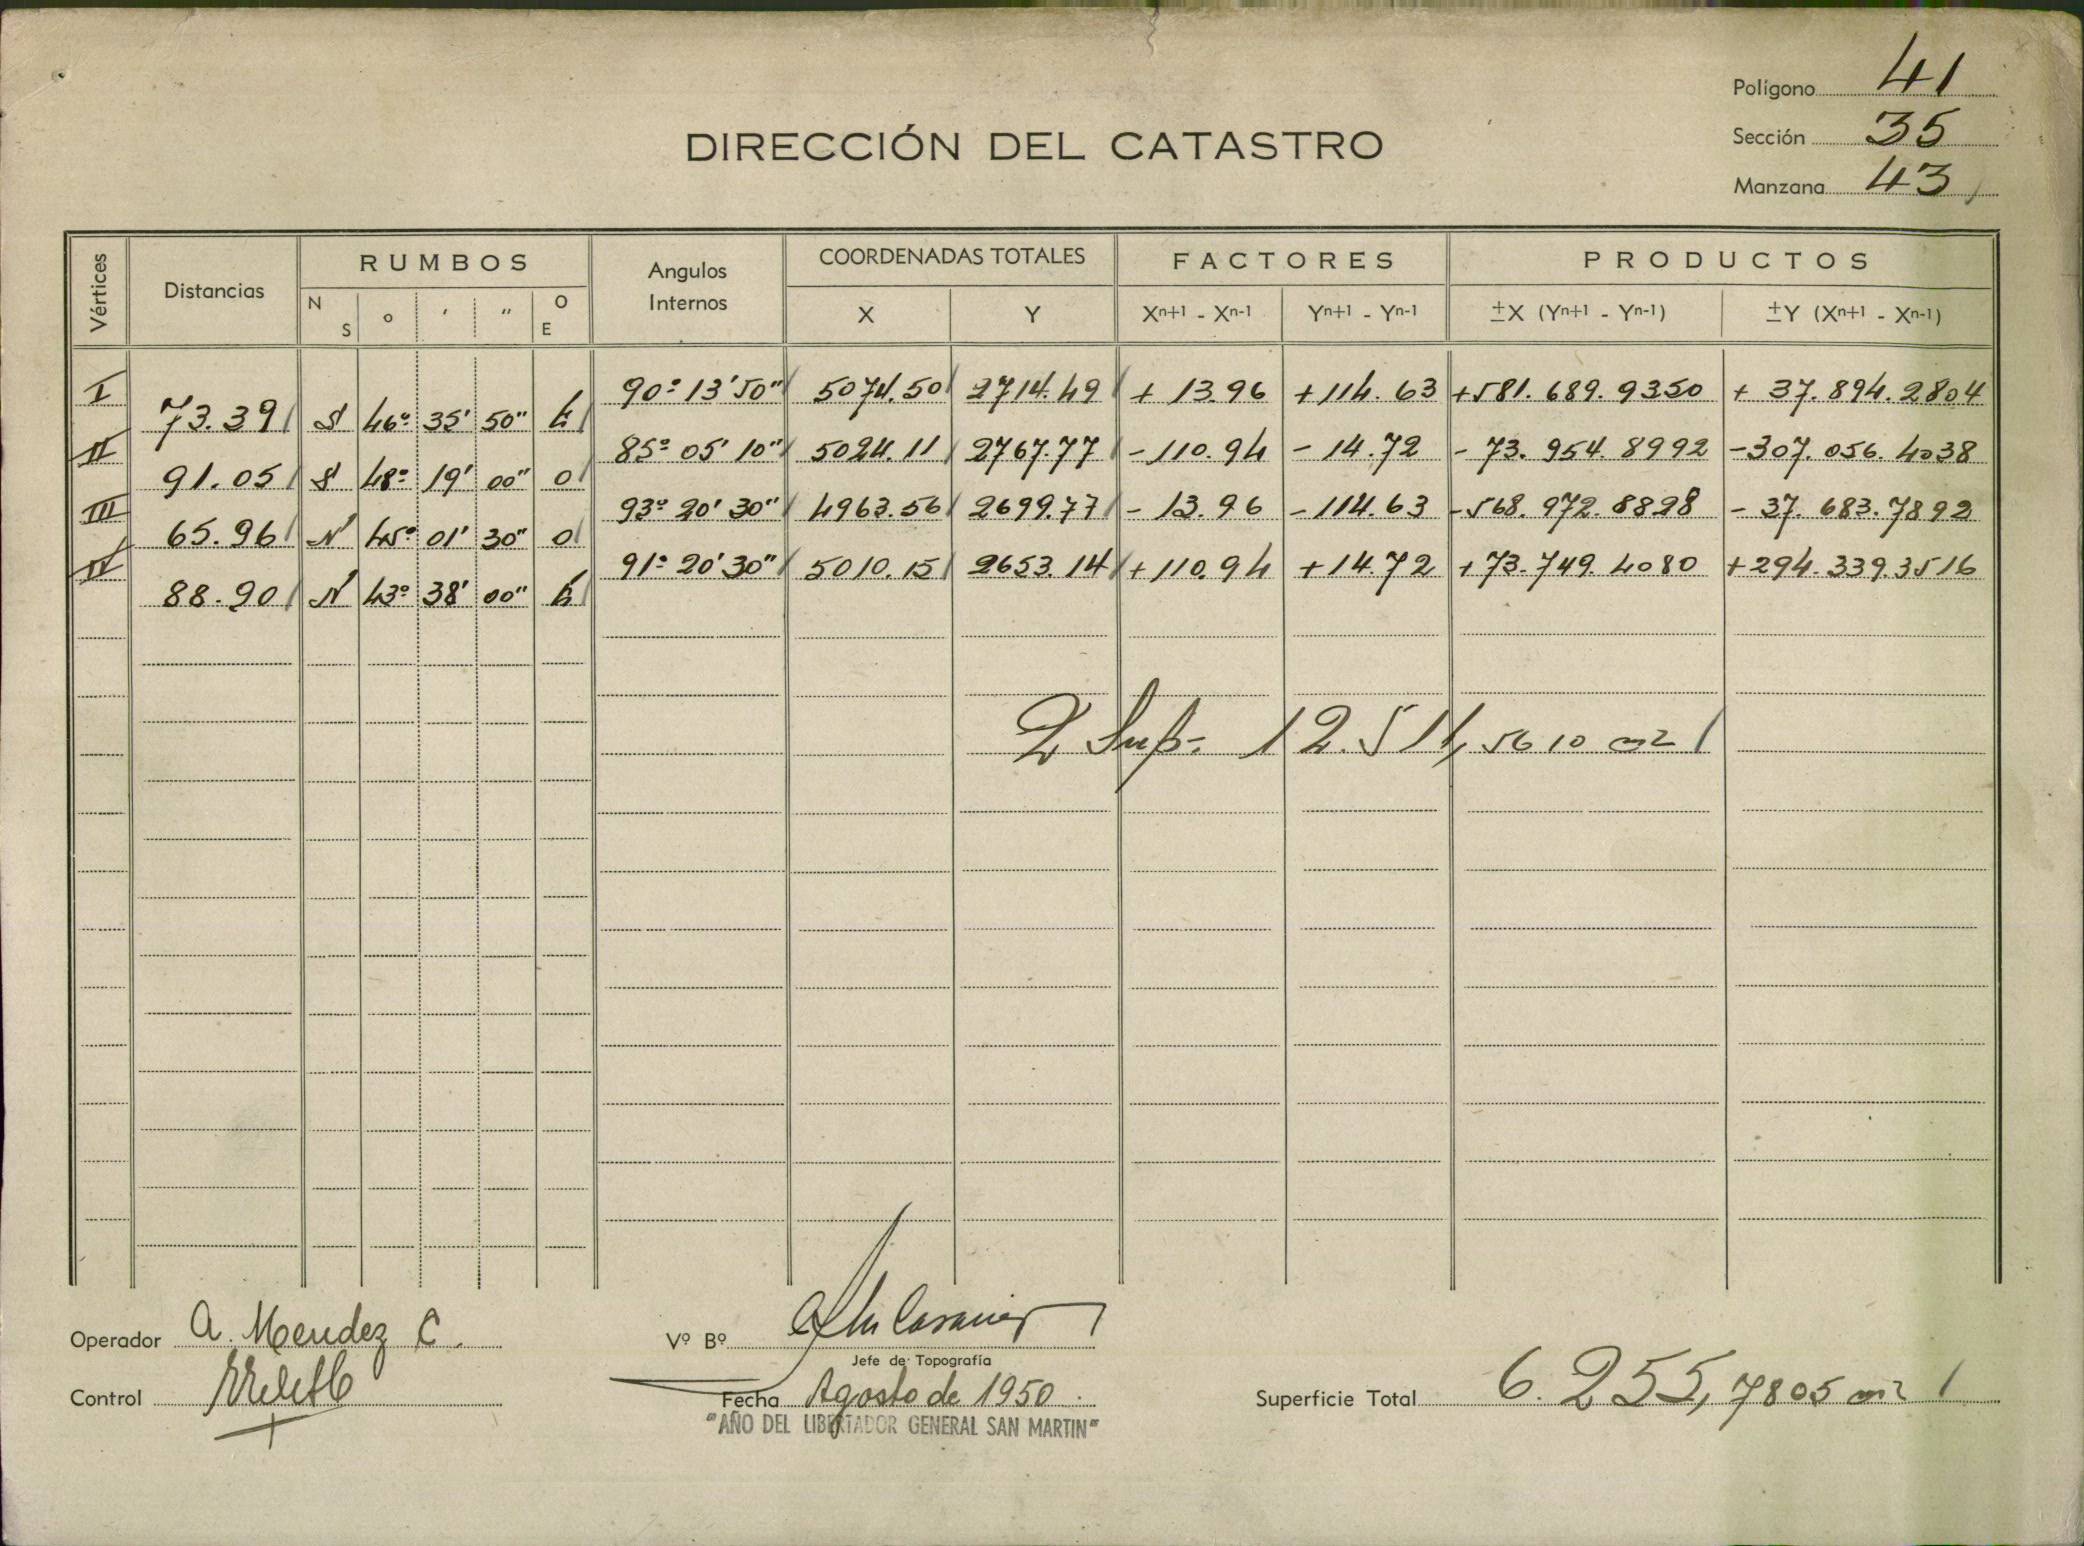 Polígono 41
DIRECCIÓN DEL CATASTRO
Sección 35
Manzana 43
Vértices Distancias RUMBOS Angulos Internos COORDENADAS TOTALES FACTORES PRODUCTOS
N S o ′ ″ O E X Y Xn+1 - Xn-1 Yn+1 - Yn-1 ±X (Yn+1 - Yn-1) ±Y (Xn+1 - Xn-1)
I 90º 13' 50" 5074.50 2714.49 + 13.96 + 114.63 +581.689.9350 + 37.894.2804
73.39 S 46º 35' 50" E
II 85º 05' 10" 5024.11 2767.77 - 110.94 - 14.72 - 73.954.8992 - 307.056.4038
91.05 S 48º 19' 00" O
III 93º 20' 30" 4963.56 2699.77 - 13.96 - 114.63 - 568.972.8828 - 37.683.7892
65.96 N 45º 01' 30" O
IV 91º 20' 30" 5010.15 2653.14 + 110.94 + 14.72 + 73.749.4080 + 294.339.3516
88.90 N 43º 38' 00" E
2 Sup= 12.511,5610 m2
Operador A. Mendez C.
Vº Bº
Jefe de Topografía
Control
Fecha Agosto de 1950.
Superficie Total 6.255,7805 m2
"AÑO DEL LIBERTADOR GENERAL SAN MARTIN"